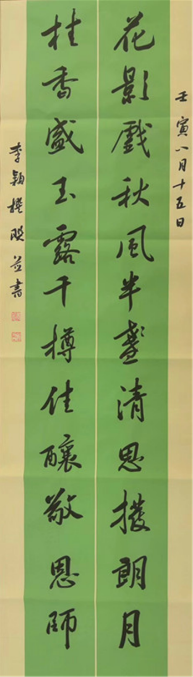 壬寅八月十五日
花影戲秋風半盞清思摟朗月
桂香盛玉露千樽佳釀敬恩師
李穎撰暨並書